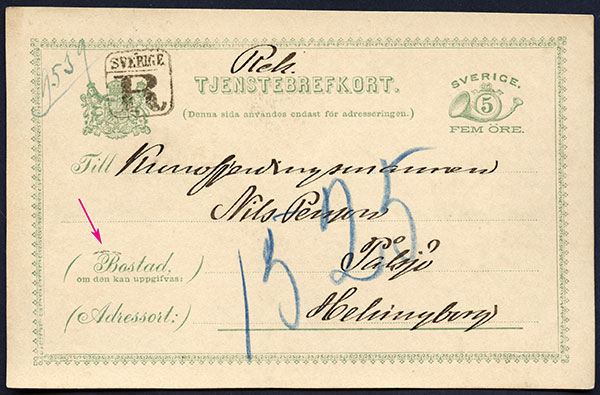 1559
Rek.
SVERIGE
R
TJENSTEBREFKORT.
(Denna sida användes endast för adresseringen.)
SVERIGE.
5
FEM ÖRE.
Till Kronofjerdingsmannen
Nils Persson
(Bostad,
om den kan uppgifvas:)
Pålsjö
(Adressort:)
Helsingborg
1525